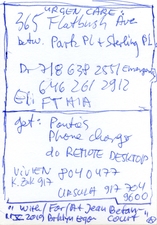 URGEN CARE:
365 Flatbush Ave
betw. Park Pl + Sterling Pl.
D- 718 638 2551 Emergency
646 261 2912
ET: FT AIA
get: Pants
Phone charger
do REMOTE DESKTOP
VIVIEN 804 0477
K. 917
URSULA 917 704
9600
"With/For/At Jean
2019 Court"